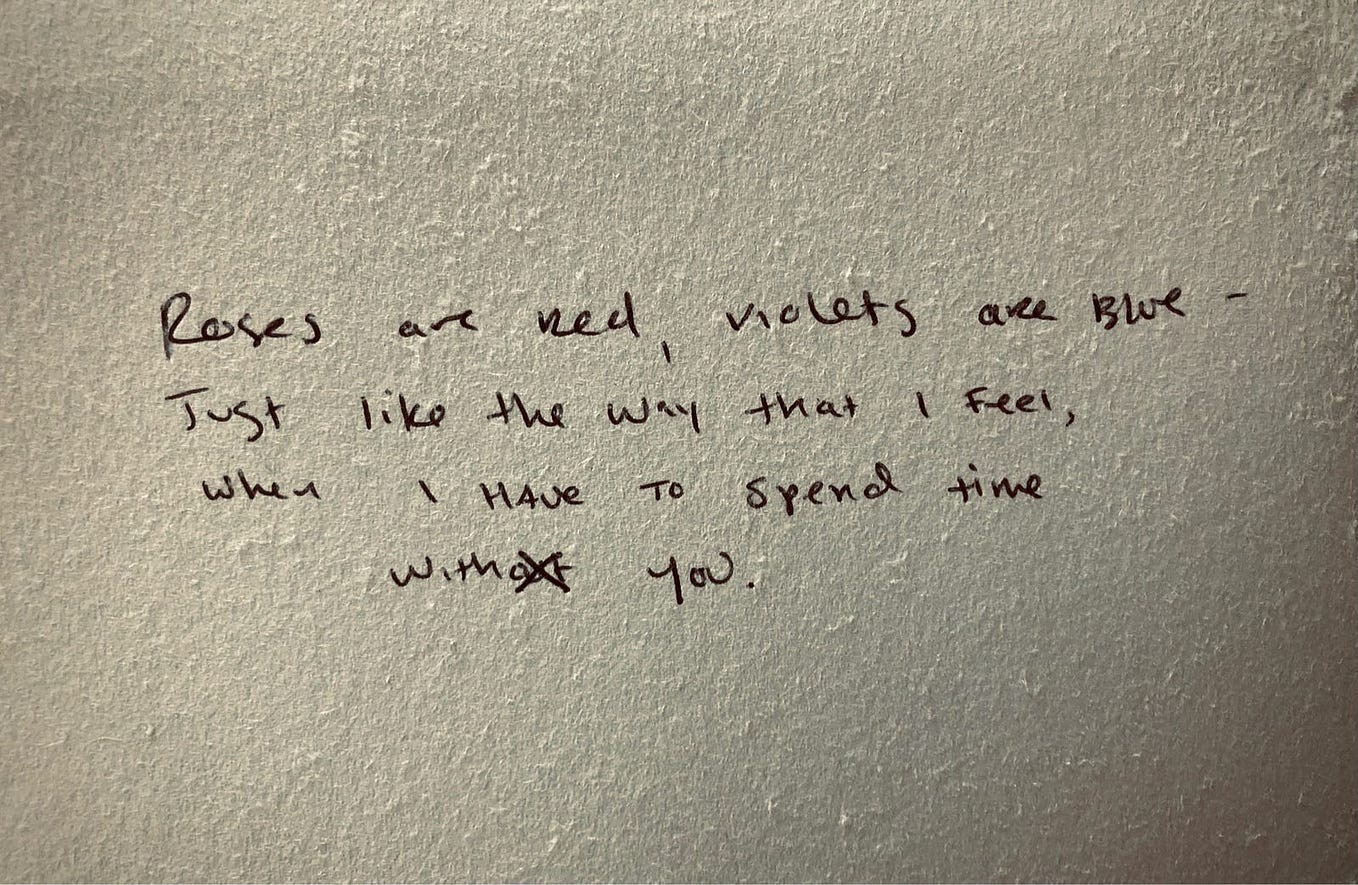 Roses are red, violets are Blue -
Just like the way that I feel,
when I HAVE TO spend time
with you.